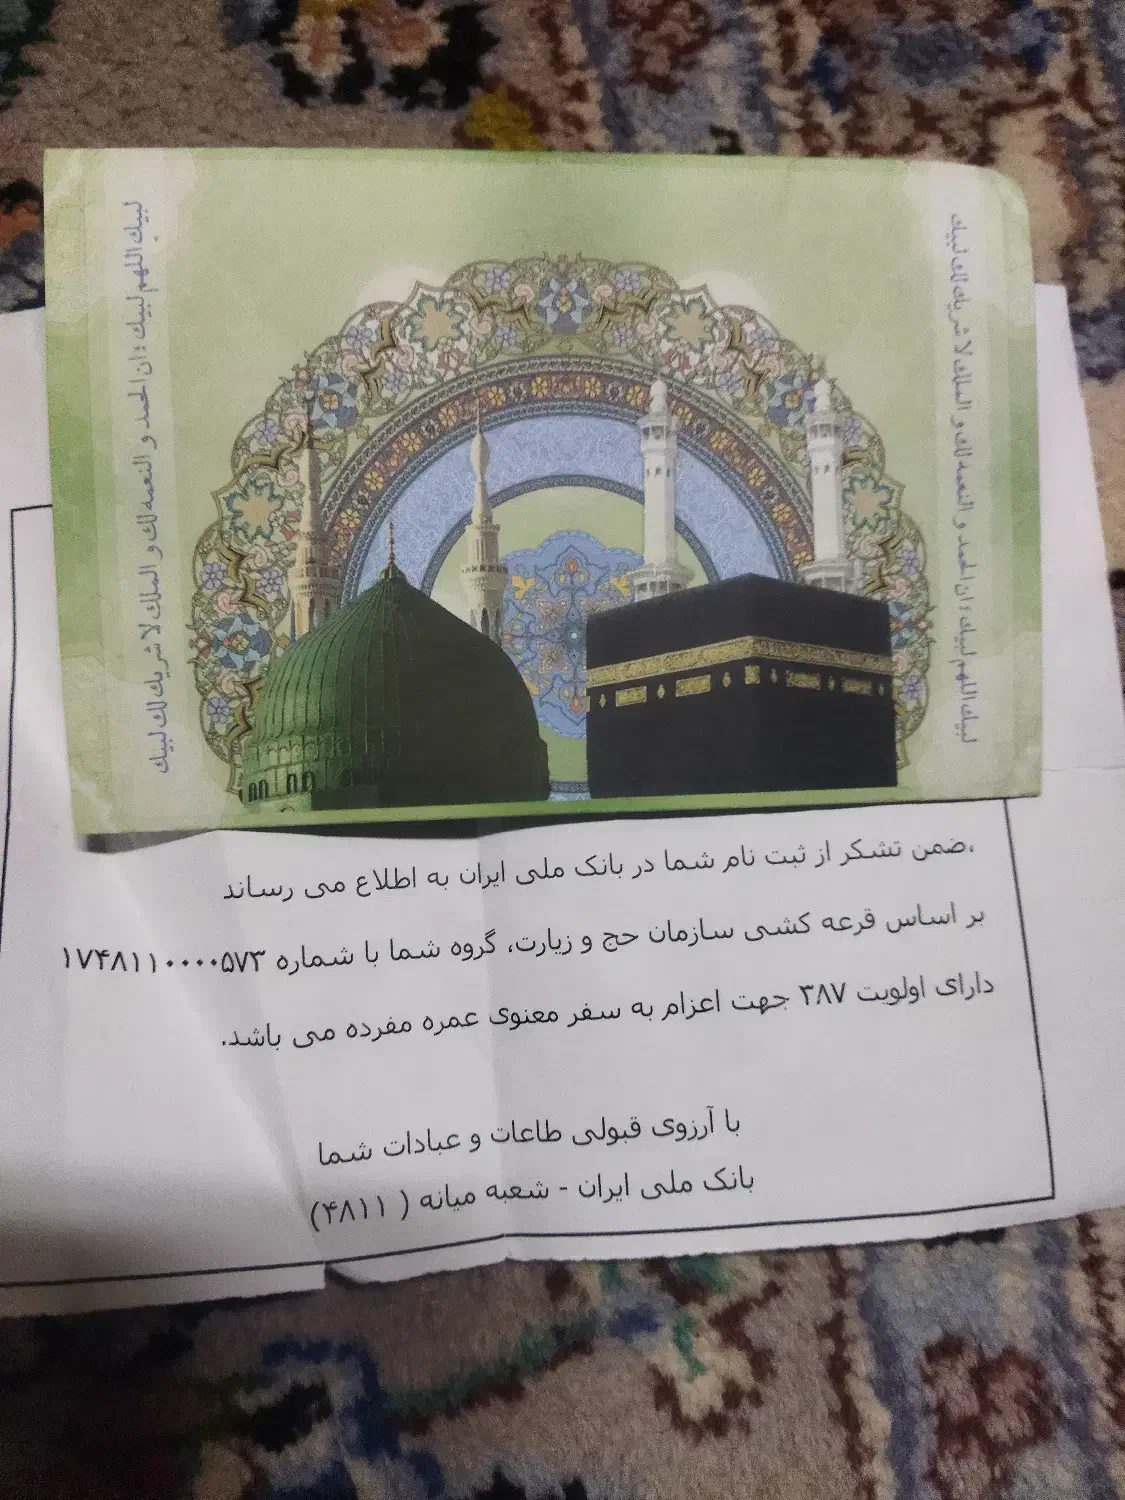 لبيك اللهم لبيك ؛ ان الحمد و النعمه لك و الملك لا شريك لك لبيك
لبيك اللهم لبيك ؛ ان الحمد و النعمه لك و الملك لا شريك لك لبيك
،ضمن تشکر از ثبت نام شما در بانک ملی ایران به اطلاع می رساند
بر اساس قرعه کشی سازمان حج و زیارت، گروه شما با شماره ۱۷۴۸۱۱۰۰۰۰۵۷۳
دارای اولویت ۳۸۷ جهت اعزام به سفر معنوی عمره مفرده می باشد.
با آرزوی قبولی طاعات و عبادات شما
بانک ملی ایران - شعبه میانه ( ۴۸۱۱)